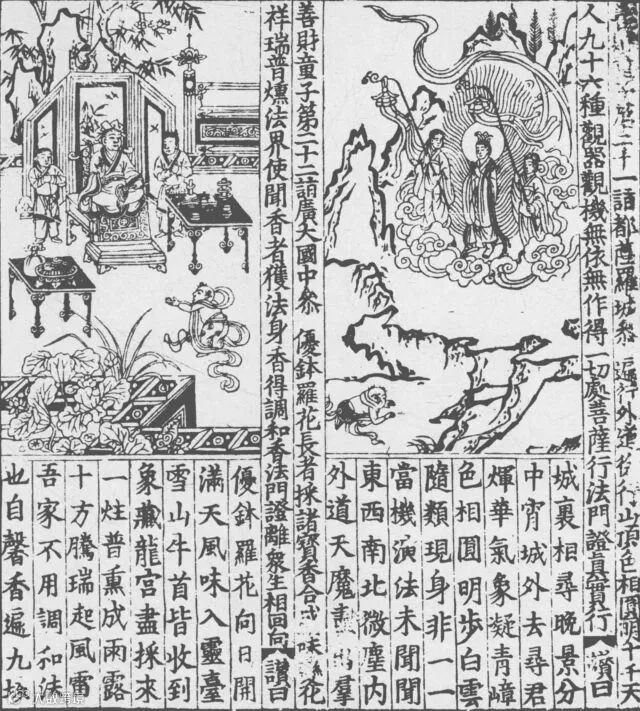 善財童子第二十一詣都薩羅城參 遍行外道 於山頂色相圓明千千天
人九十六種觀器觀機無依無作得一切處菩薩行法門證真實行 讚曰
城裏相尋晚景分
中宵城外去尋君
輝華氣象凝青嶂
色相圓明步白雲
隨類現身非一一
當機演法未聞聞
東西南北微塵內
外道天魔盡 羣
善財童子第二十二詣廣大國中參 優鉢羅花長者採諸寶香合 花
祥瑞普熏法界使聞香者獲法身香得調和香法門證離衆生相回向 讚曰
優鉢羅花向日開
滿天風味入靈臺
雪山牛首皆收到
象藏龍宮盡採來
一炷普熏成雨露
十方騰瑞起風雷
吾家不用調和法
也自馨香遍九垓